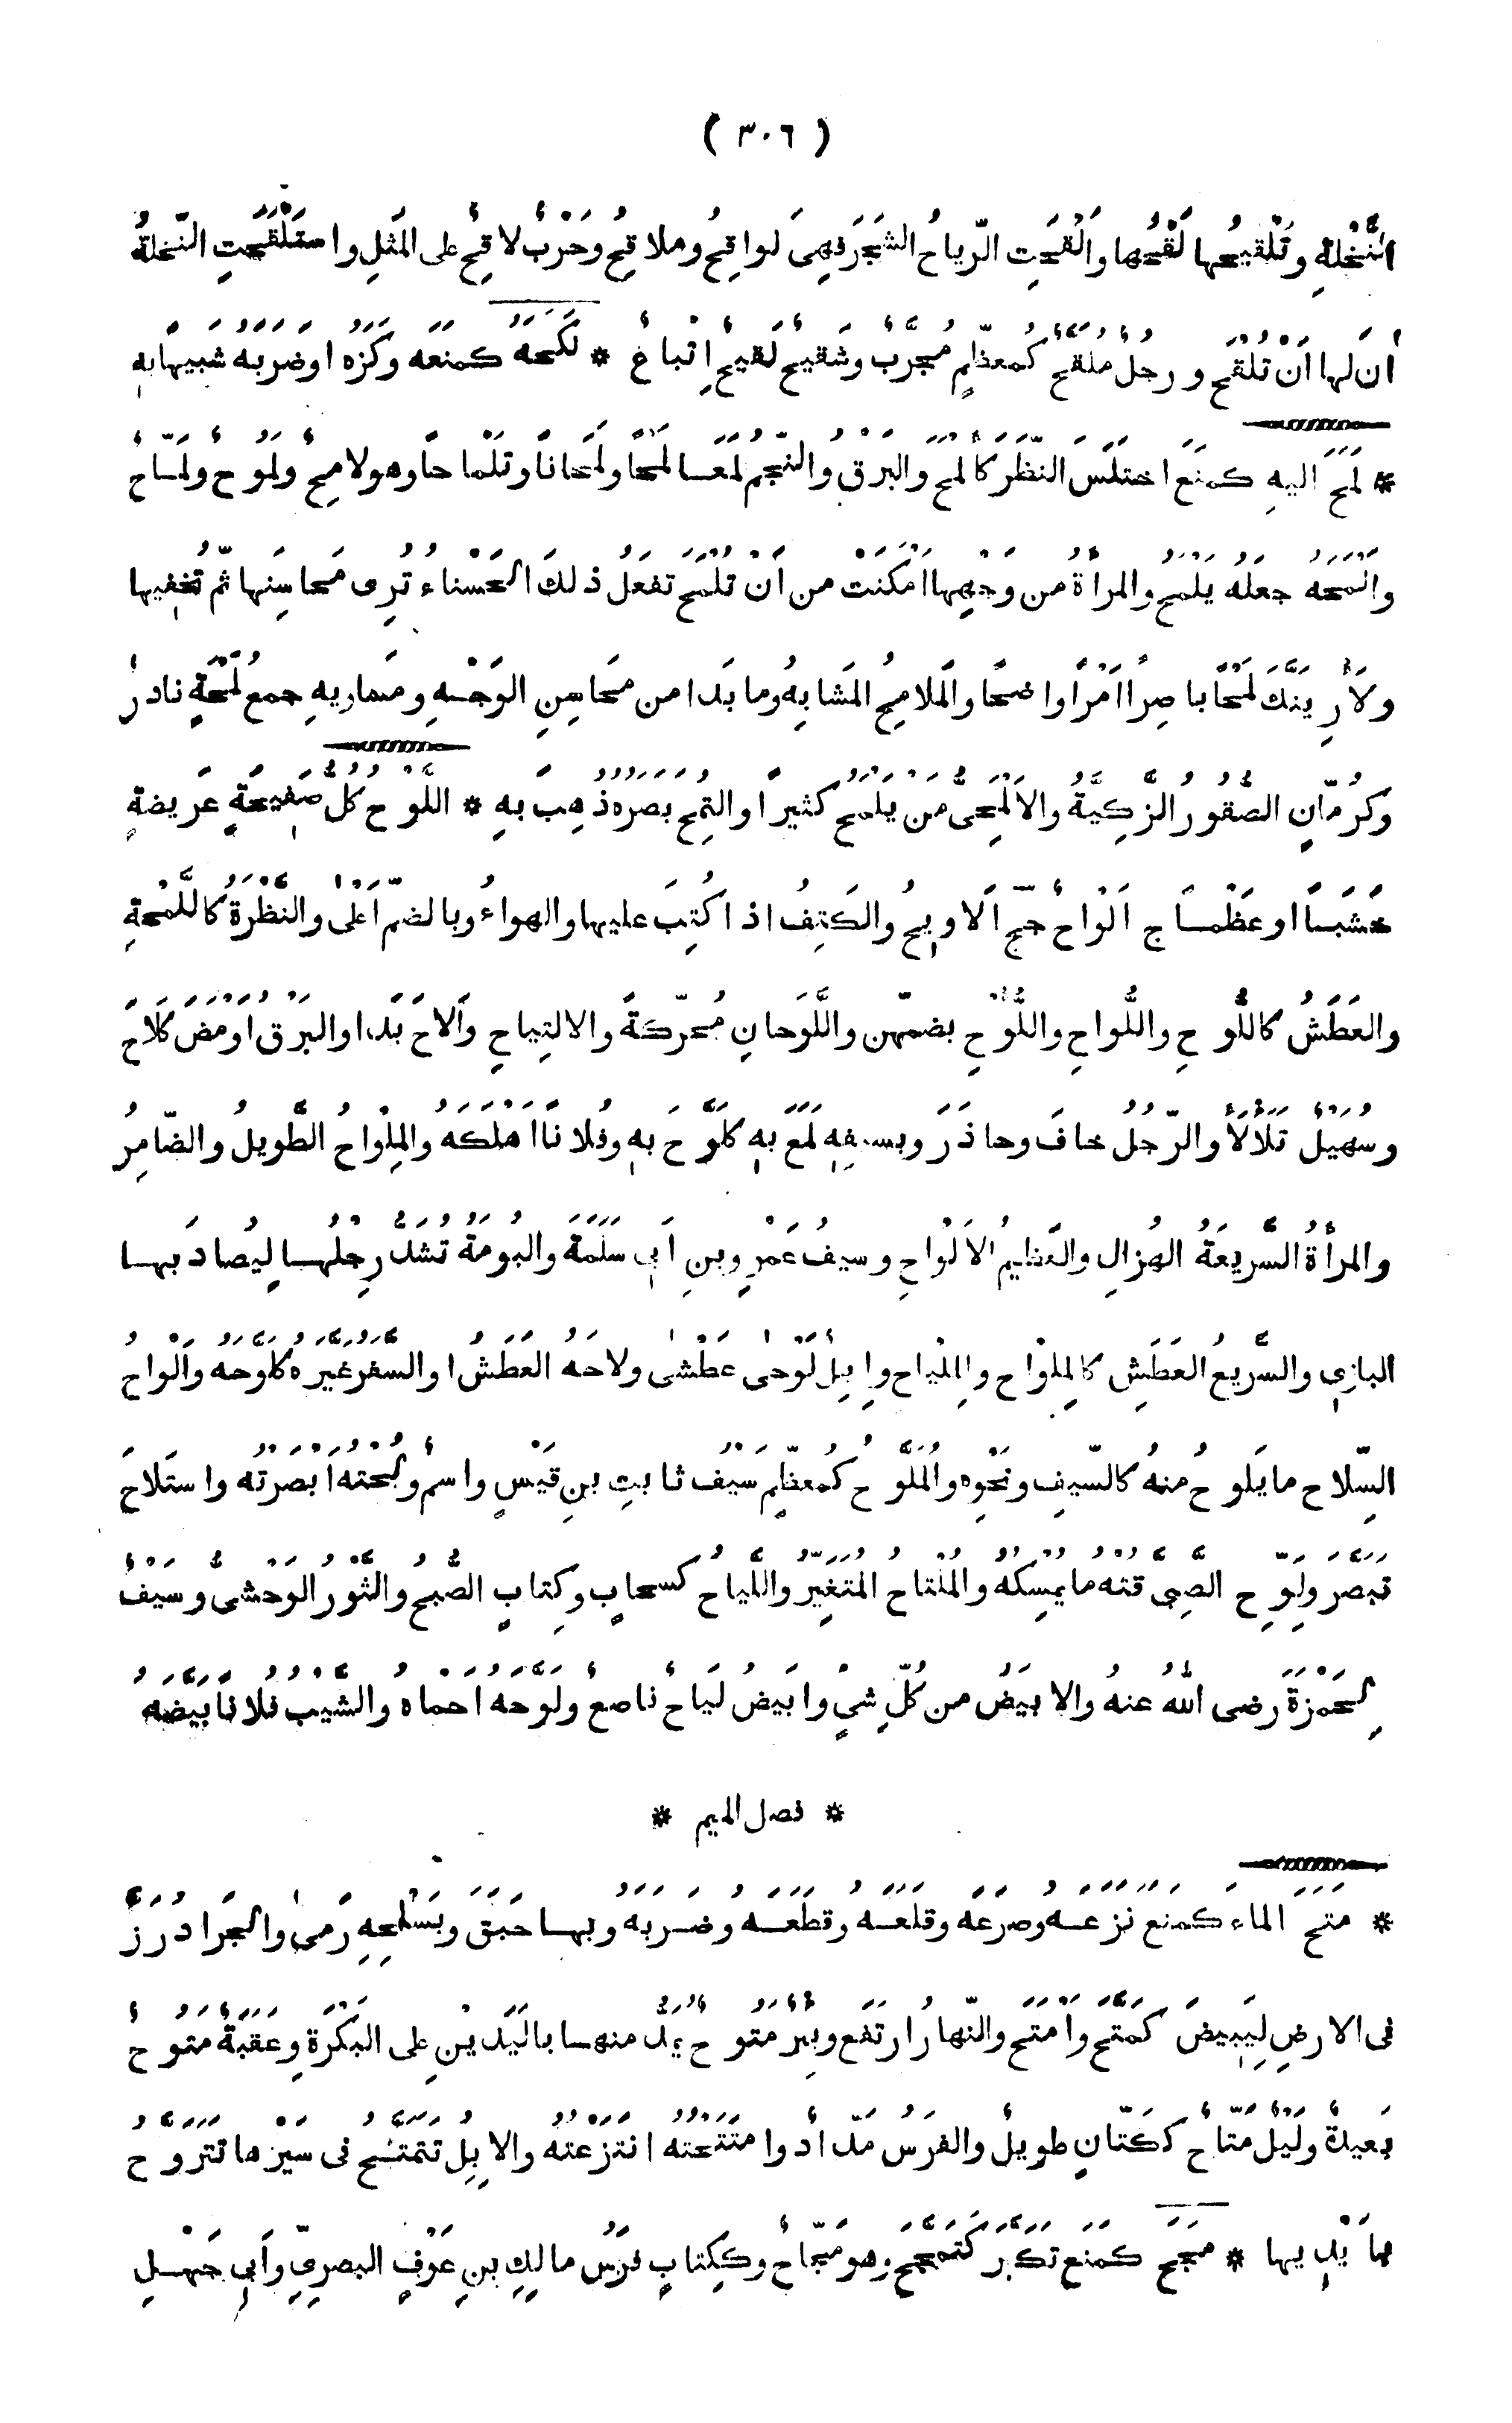 ( ٣٠٦ )
النَّخْلَةِ وتَلْقيحُها لَقْحُها وأَلْقَحَتِ الرّياحُ الشَّجَرَ فهِىَ لَواقِحُ ومَلاقِحُ وحَرْبٌ لاقِحٌ على المَثَلِ واستَلْقَحَتِ النَّخلةُ
أنَ لها أنْ تُلْقَحَ ورجُلٌ مُلَقَّحٌ كمُعظَّمٍ مُجرَّبٌ وشَقيحٌ لَقيحٌ إتْباعٌ * لَكَحَهُ كمنعَهُ وكَزَهُ اوضَرَبَهُ شَبيهًا بهِ
* لَمَحَ اليهِ كمنَعَ اختَلَسَ النظَرَ كأَلْمَحَ والبَرْقُ والنَّجمُ لَمَعَا لَمْحًا ولَمَحاناً وتَلْماحاً وهو لامِحٌ ولَمُوحٌ ولَمّاحٌ
وأَلْمَحَهُ جعَلَهُ يَلْمَحُ والمرأةُ من وَجْهِها امْكَنَتْ من أنْ تُلْمَحَ تَفعَلُ ذلكَ الحَسْناءُ تُرِى مَحاسِنَها ثُمّ تُخْفِيها
ولَأُرِيَنَّكَ لَمْحًا باصِراً أمْراً واضحًا والمَلامِحُ المَشابِهُ وما بَدا من مَحاسِنِ الوَجْهِ ومساويهِ جمعُ لَمْحَةٍ نادرٌ
وكرُمّانٍ الصُّقُورُ الزَّكِيَّةُ والأَلْمَحِىُّ مَن يَلْمَحُ كثيراً والتُمِحَ بصرُهُ ذُهِبَ بهِ * اللَّوْحُ كلُّ صَفيحَةٍ عَريضةٍ
خَشَبًا اوعَظْمًا ج أَلْواحٌ جج أَلاويحُ والكَتِفُ اذا كُتِبَ عليها والهواءُ وبالضمّ أَعْلى والنَّظْرَةُ كاللَّمْحةِ
والعَطَشُ كاللُّوحِ واللُّواحِ واللُّؤُوحِ بضمّهن واللَّوَحانِ مُحرّكةً والالتِياحِ وأَلاحَ بَدا والبَرْقُ أَوْمَضَ كَلاحَ
وسُهَيْلٌ تَلَألأَ والرّجُلُ خافَ وحاذَرَ وبسيفِهِ لَمَعَ بهِ كلَوَّحَ بهِ وفُلاناً أَهْلَكَهُ والمِلْواحُ الطَّويلُ والضّامِرُ
والمرأةُ السَّريعَةُ الهُزالِ والعَظيمُ الأَلْواحِ وسيفُ عَمْرِو بنِ أَبى سَلَمَةَ والبُومَةُ تُشَدُّ رِجْلُها لِيُصادَ بها
البازِى والسَّريعُ العَطَشِ كالمِلْوَحِ والمِلْياحِ وإبِلٌ لَوْحَى عَطْشَى ولاحَهُ العَطَشُ اوالسَّفَرُ غَيَّرَهُ كلَوَّحَهُ وأَلْواحُ
السِّلاحِ ما يَلوحُ منهُ كالسّيفِ ونَحْوِهِ والمُلَوَّحُ كمُعظَّمٍ سَيْفُ ثابتِ بنِ قَيْسٍ واسْمٌ ولُحْتُهُ أَبْصَرْتُهُ واستَلاحَ
تبَصَّرَ ولَوِّحِ الصَّبِىَّ قُتْهُ ما يُمْسِكُهُ والمُلْتاحُ المُتغَيِّرُ واللَّياحُ كسَحابٍ وكِتابٍ الصُّبْحُ والثَّوْرُ الوَحْشىُّ وسَيْفٌ
لِحَمْزَةَ رَضى اللهُ عنهُ والأبيَضُ من كُلِّ شىءٍ وأَبيَضُ لَياحٌ ناصِعٌ ولَوَّحَهُ أحْماهُ والشَّيْبُ فُلاناً بَيَّضَهُ
* فصل الميم *
* مَتَحَ الماءَ كمَنَعَ نَزَعَهُ وصَرَعَهُ وقَلَعَهُ وقَطَعَهُ وضَرَبَهُ وبها حَبَقَ وبسَلْحِهِ رَمَى والجَرادُ رَزَّ
فى الارضِ لِيَبيضَ كمَتَّحَ وأَمْتَحَ والنّهارُ ارتَفَعَ وبِئرٌ مَتُوحٌ يُمَدُّ منها باليَدَيْنِ على البَكْرَةِ وعَقَبَةٌ مَتُوحٌ
بَعيدةٌ ولَيْلٌ مَتّاحٌ ككَتّانٍ طويلٌ والفرَسُ مَدّادٌ وامْتَتَحْتُهُ انتَزَعْتُهُ والابِلُ تتَمَتَّحُ فى سَيْرِها تَتَرَوَّحُ
بأَيْدِيها * مَجَحَ كمَنَعَ تكَبَّرَ كتَمَجَّحَ وهو مَجّاحٌ وككِتابٍ فرَسُ مالِكِ بنِ عَوْفٍ البصرِىِّ وأَبى جَهْلِ